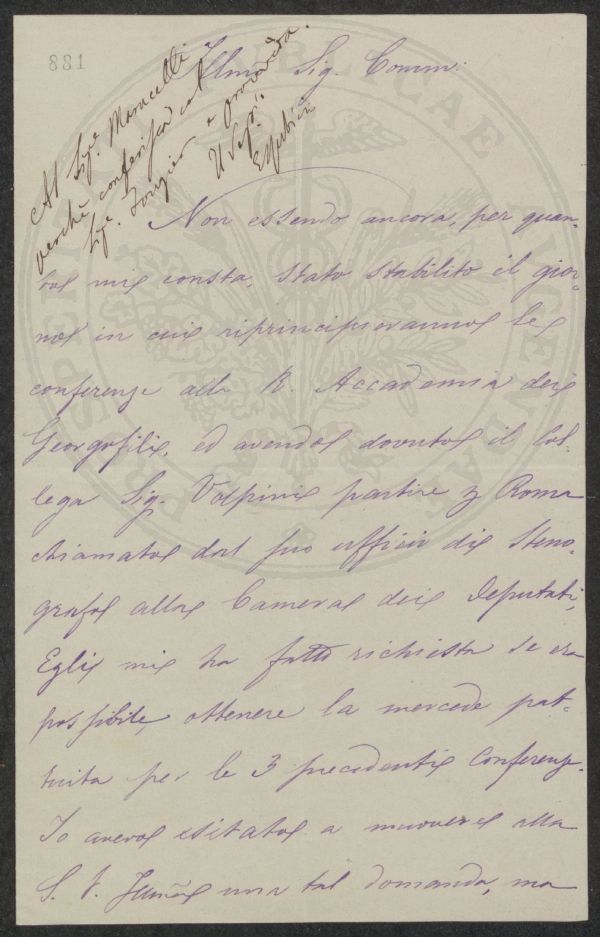 881
Al Sig.e Maracelli
perchè conferisca col
Sig.e e provveda.
Illmo Sig. Comm.
Non essendo ancora, per quan-
to mi consta, stato stabilito il gior-
no in cui riprincipieranno le
conferenze alla R. Accademia dei
Georgofili, ed avendo dovuto il Col-
lega Sig. Volpini partire p Roma
chiamato dal suo ufficio di Steno-
grafo alla Camera dei Deputati,
Egli mi ha fatto richiesta se era
possibile, ottenere la mercede pat-
tuita per le 3 precedenti Conferenze.
Io avevo esitato a muovere alla
S. V. Illma una tal domanda, ma